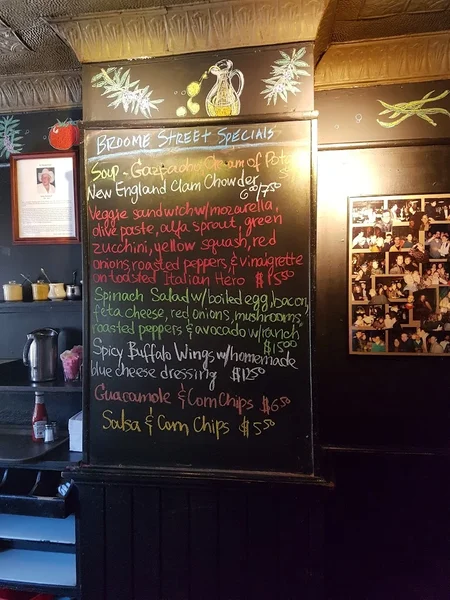 Broome Street Specials
Soup - Gazpacho Cream of Potato
New England Clam Chowder 6⁰⁰/7⁵⁰
Veggie sandwich w/mozarella,
olive paste, alfa sprout, green
zucchini, yellow squash, red
onions, roasted peppers, & vinaigrette
on toasted Italian Hero $15⁵⁰
Spinach Salad w/boiled egg, bacon,
feta cheese, red onions, mushrooms,
roasted peppers & avocado w/ranch
$15⁰⁰
Spicy Buffalo Wings w/homemade
blue cheese dressing $12⁵⁰
Guacamole & Corn Chips $6⁵⁰
Salsa & Corn Chips $5⁵⁰